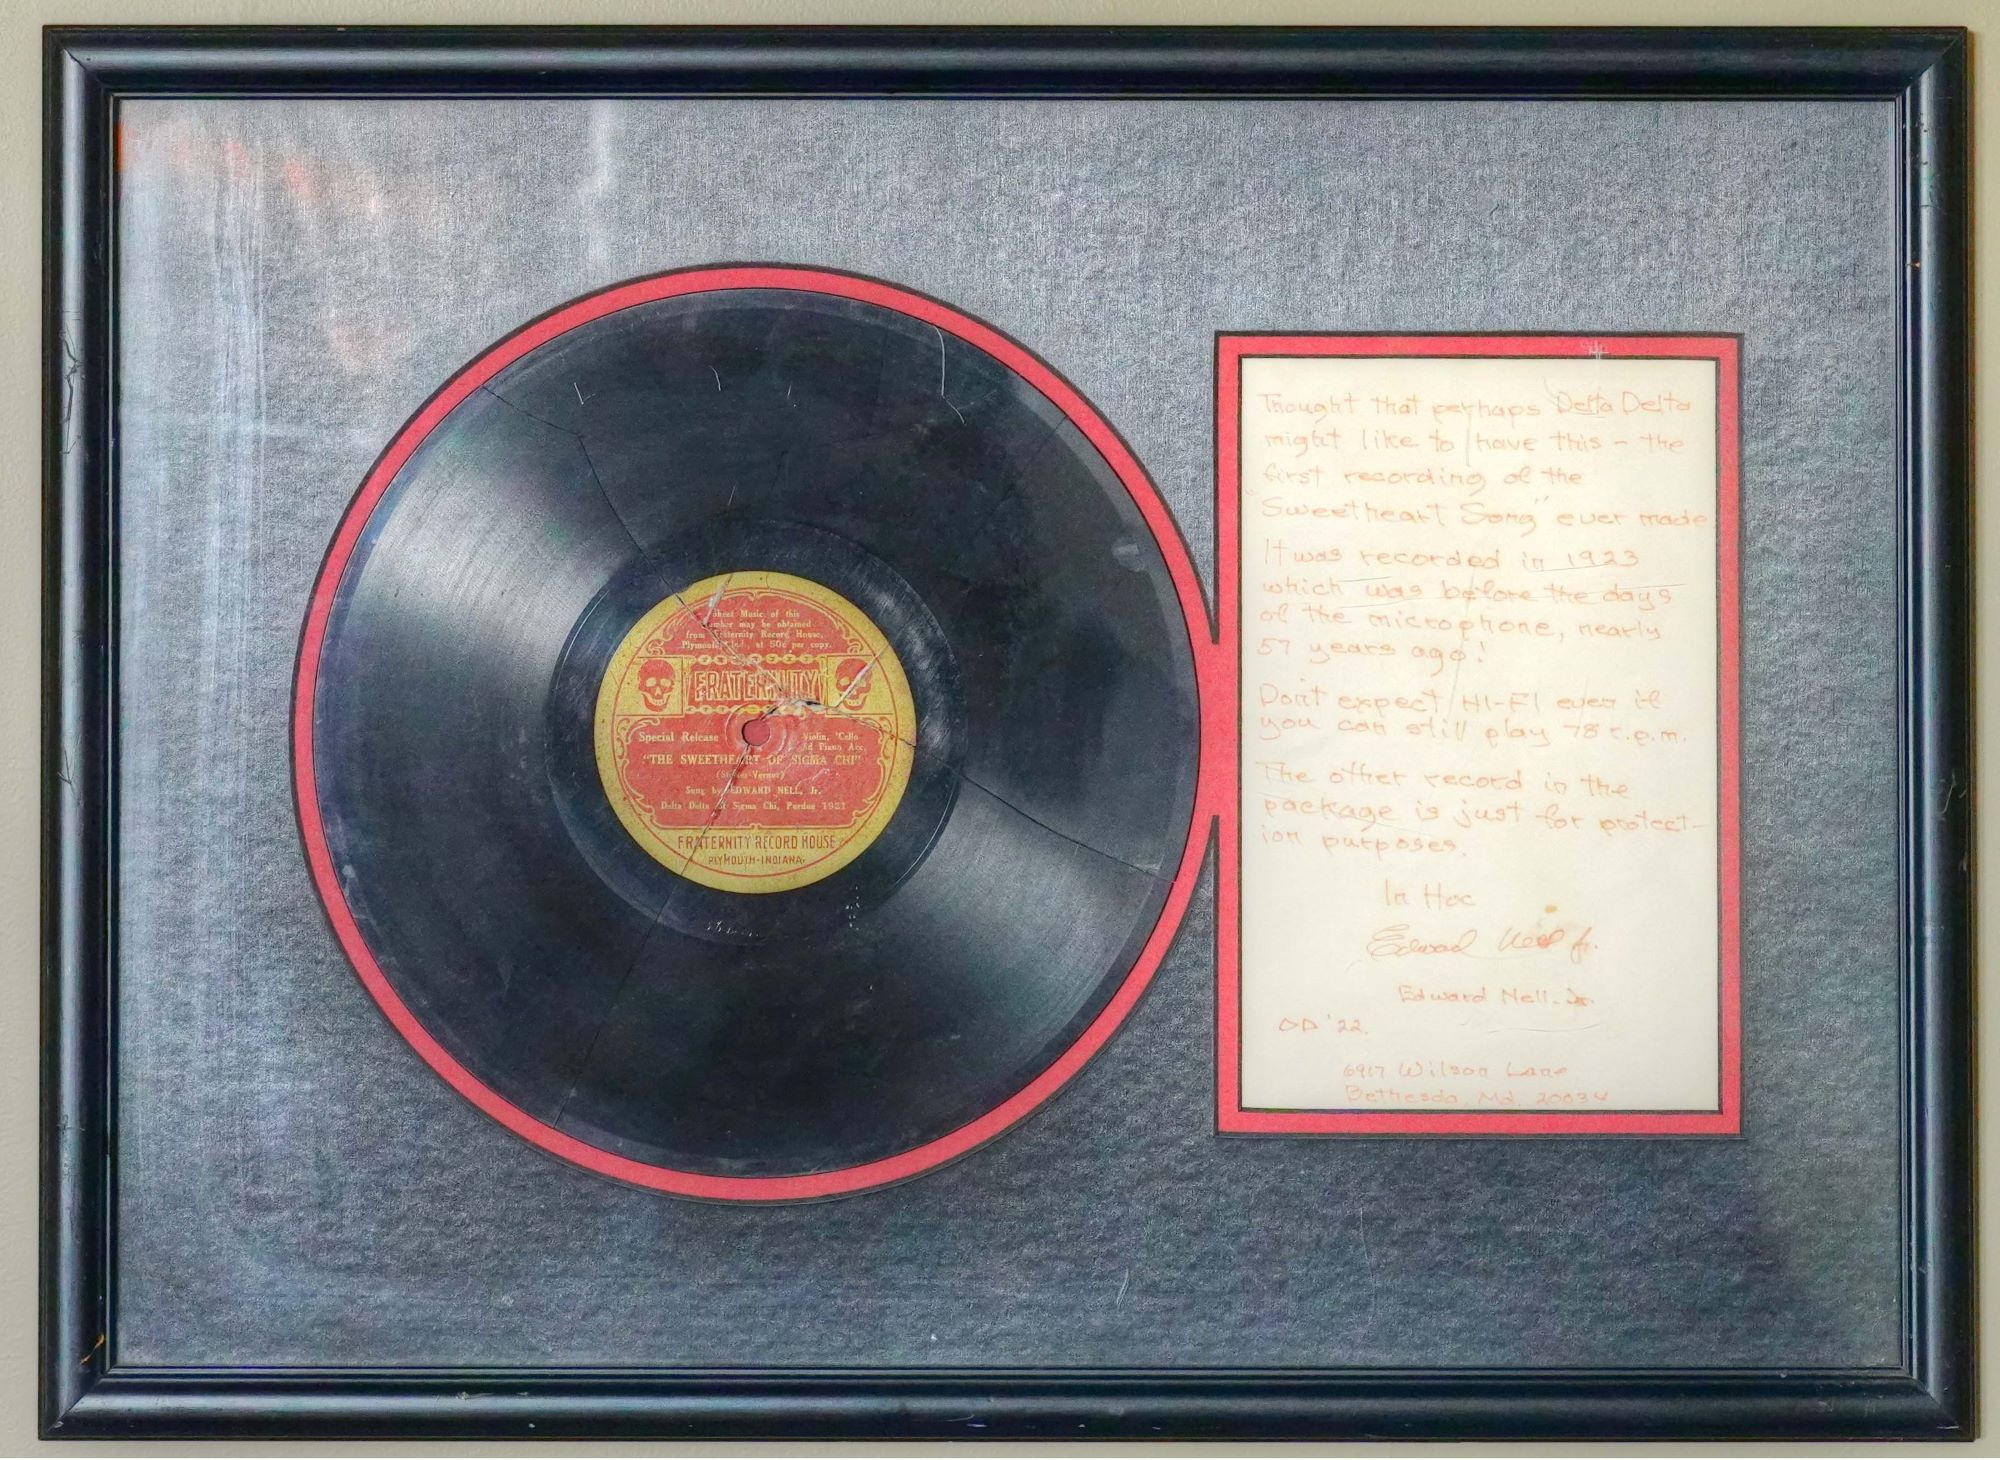 Sheet Music of this
number may be obtained
from Fraternity Record House,
Plymouth, Ind., at 50c per copy.
FRATERNITY
Special Release
Violin, 'Cello
and Piano Acc.
"THE SWEETHEART OF SIGMA CHI"
(Stokes-Vernor)
Sung by EDWARD NELL, Jr.
Delta Delta of Sigma Chi, Purdue 1921
FRATERNITY RECORD HOUSE
PLYMOUTH-INDIANA.
Thought that perhaps Delta Delta
might like to have this - the
first recording of the
"Sweetheart Song" ever made
It was recorded in 1923
which was before the days
of the microphone, nearly
57 years ago!
Don't expect HI-FI even if
you can still play 78 r.p.m.
The other record in the
package is just for protect-
ion purposes.
In Hoc
Edward Nell Jr.
Edward Nell. Jr.
ΔΔ '22.
6917 Wilson Lane
Bethesda, Md. 20034